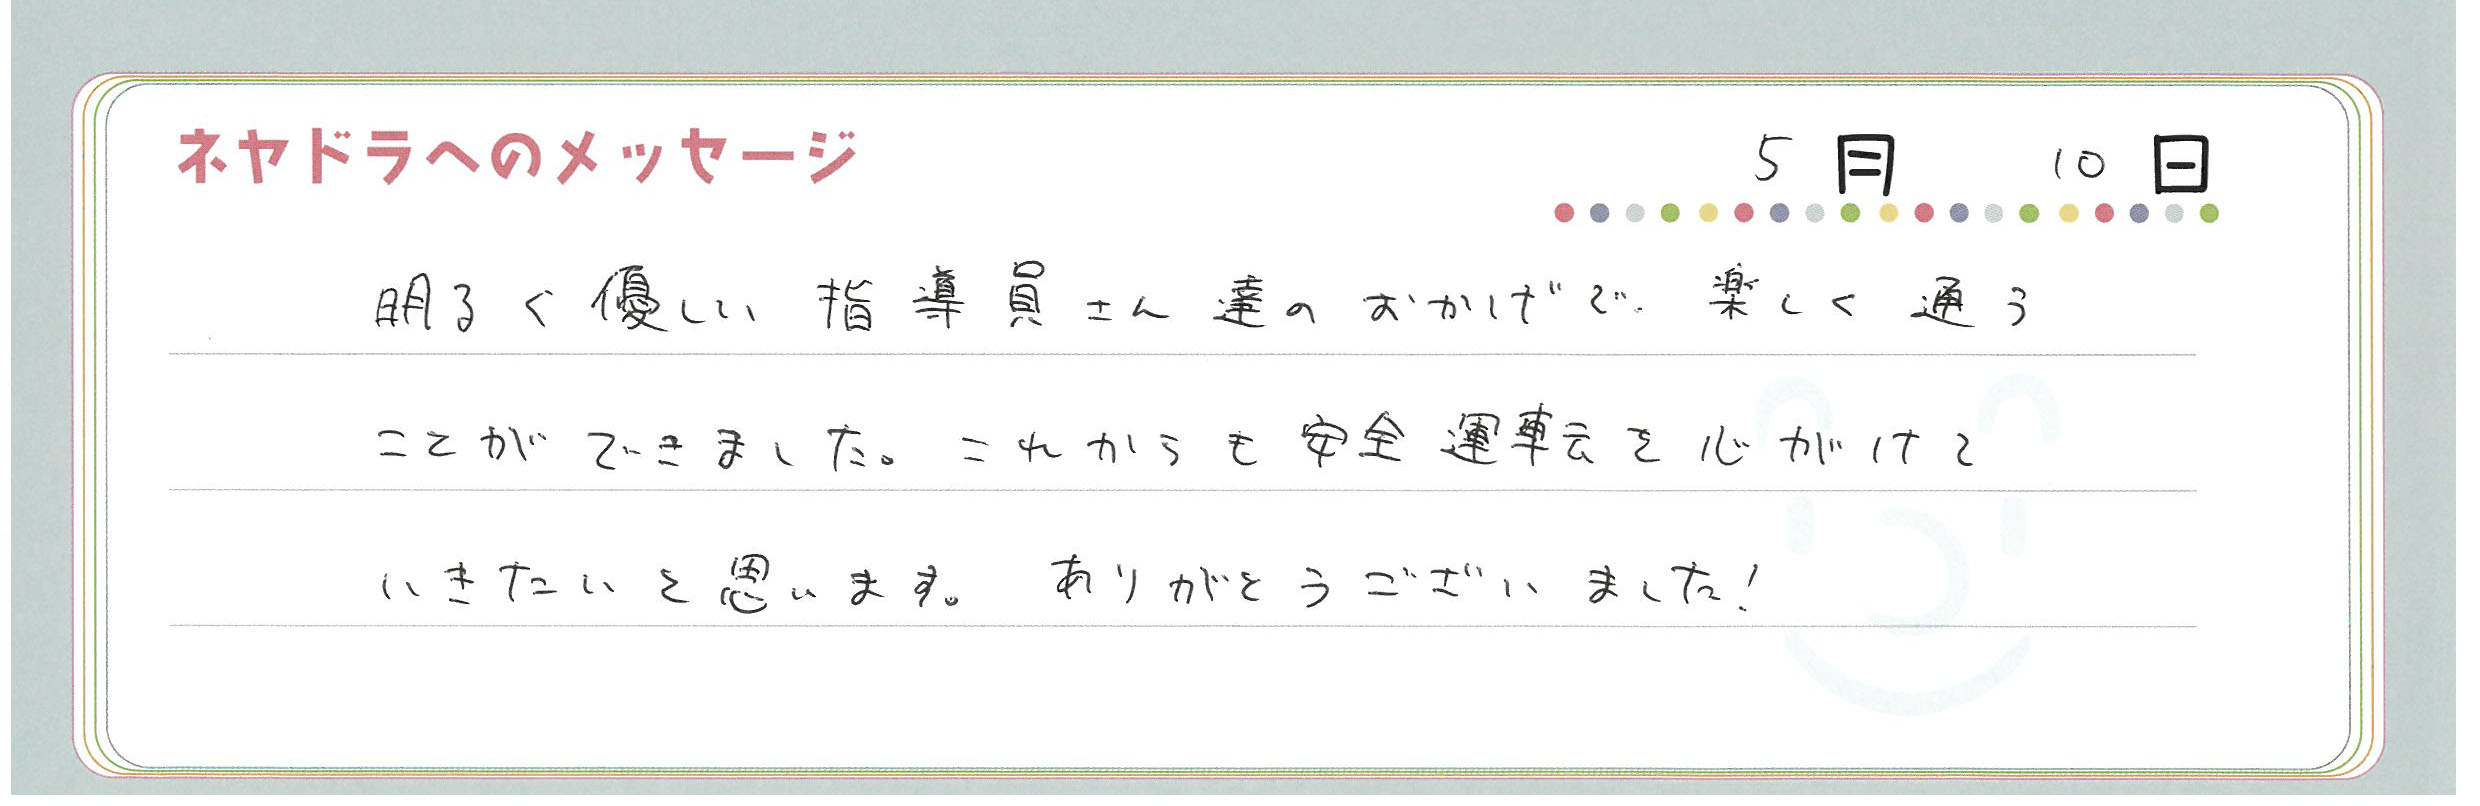 ネヤドラへのメッセージ 5月 10日
明るく優しい指導員さん達のおかげで、楽しく通う
ことができました。これからも安全運転を心がけて
いきたいと思います。ありがとうございました!